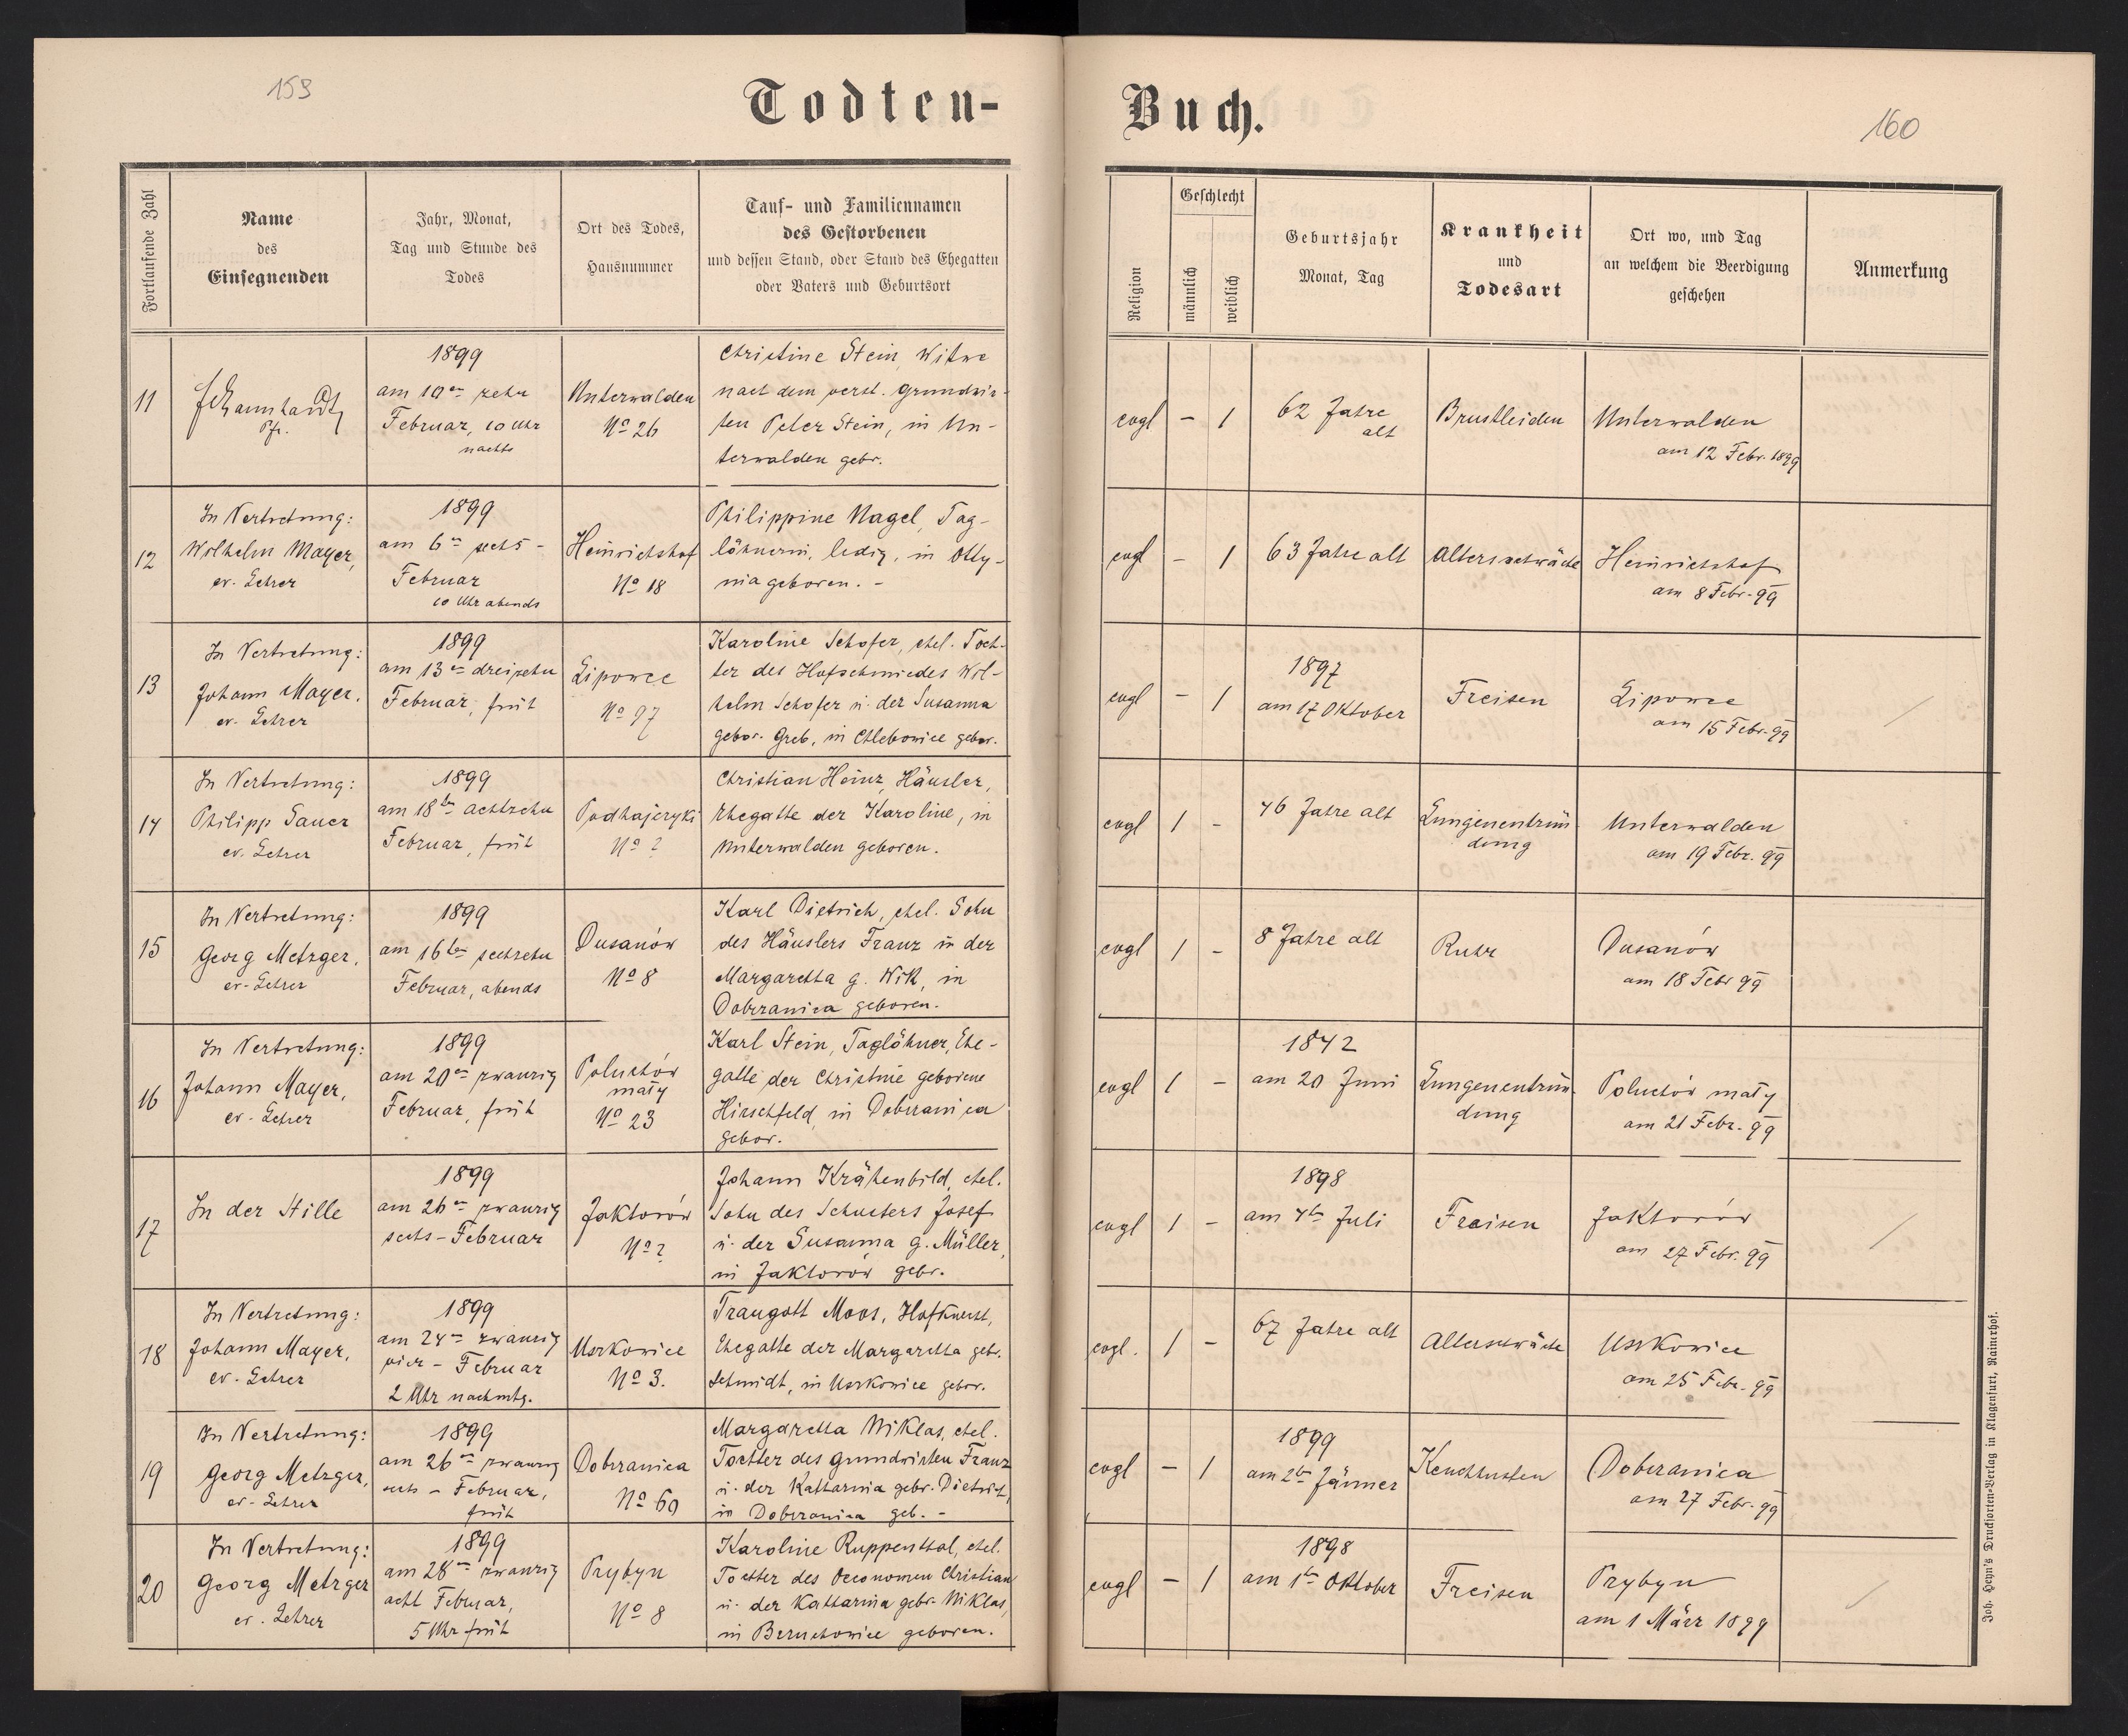 153
Todten-
Buch.
160
Fortlaufende Zahl
Name
des
Einsegnenden
Jahr, Monat,
Tag und Stunde des
Todes
Ort des Todes,
Hausnummer
Tauf- und Familiennamen
des Gestorbenen
und dessen Stand, oder Stand des Ehegatten
oder Vaters und Geburtsort
Religion
Geschlecht
männlich
weiblich
Geburtsjahr
Monat, Tag
Krankheit
und
Todesart
Ort wo, und Tag
an welchem die Beerdigung
geschehen
Anmerkung
11
Pfr.
1899
am 10ten zehn
Februar, 10 Uhr
nachts
Unterwalden
No 26
Christine Stein, Witwe
nach dem verst. Grundwir-
ten Peter Stein, in Un-
terwalden gebr.
evgl
-
1
62 Jahre
alt
Brustleiden
Unterwalden
am 12 Febr. 1899
12
In Vertretung:
Wilhelm Mayer,
ev. Lehrer
1899
am 6ten sechs -
Februar
10 Uhr abends
Heinrichshof
No 18
Philippine Nagel, Tag-
löhnerin, ledig, in Otty-
nia geboren. -
evgl
-
1
63 Jahre alt
Altersschwäche
Heinrichshof
am 8 Febr. 99
13
In Vertretung:
Johann Mayer,
ev. Lehrer
1899
am 13ten dreizehn
Februar, früh
Lipowce
No 97
Karoline Schofer, ehel. Toch-
ter des Hofschmiedes Wil-
helm Schofer u. der Susanna
gebor. Greb, in Chlebowice gebor.
evgl
-
1
1897
am 17 Oktober
Freisen
Lipowce
am 15 Febr. 99
/
14
In Vertretung:
Philipp Sauer
ev. Lehrer
1899
am 18ten achtzehn
Februar, früh
Podhajczyki
No ?
Christian Heinz, Häusler,
Ehegatte der Karoline, in
Unterwalden geboren.
evgl
1
-
46 Jahre alt
Lungenentzün-
dung
Unterwalden
am 19 Febr. 99
15
In Vertretung:
Georg Metzger,
ev. Lehrer
1899
am 16ten sechzehn
Februar, abends
Dusanów
No 8
Karl Dietrich, ehel. Sohn
des Häuslers Franz u. der
Margaretha g. Wik, in
Dobrzanica geboren.
evgl
1
-
8 Jahre alt
Ruhr
Dusanów
am 18 Febr 99
16
In Vertretung:
Johann Mayer,
ev. Lehrer
1899
am 20ten zwanzig
Februar, früh
Poluchów
mały
No 23
Karl Stein, Taglöhner, Ehe-
gatte der Christine geborene
Hirschfeld, in Dobrzanica
gebor.
evgl
1
-
1842
am 20 Juni
Lungenentzün-
dung
Poluchów mały
am 21 Febr. 99
17
In der Stille
1899
am 26ten zwanzig
sechs - Februar
Jaktorów
No ?
Johann Krähenbild, ehel.
Sohn des Schusters Josef
u. der Susanna g. Müller,
in Jaktorów gebr.
evgl
1
-
1898
am 4ten Juli
Fraisen
Jaktorów
am 27 Febr. 99
/
18
In Vertretung:
Johann Mayer,
ev. Lehrer
1899
am 24ten zwanzig
vier - Februar
2 Uhr nachmtg.
Uszkowice
No 3.
Traugott Moos, Hofknecht,
Ehegatte der Margaretha gebr.
Schmidt, in Uszkowice gebor.
evgl.
1
-
67 Jahre alt
Altersschwäche
Uszkowice
am 25 Febr. 99
19
In Vertretung:
Georg Metzger,
ev. Lehrer
1899
am 26ten zwanzig
sechs - Februar,
früh
Dobrzanica
No 60
Margaretha Niklas, ehel.
Tochter des Grundwirten Franz
u. der Katharina gebr. Dietrich,
in Dobrzanica geb. -
evgl
-
1
1899
am 2ten Jänner
Keuchhusten
Dobrzanica
am 27 Febr. 99
20
In Vertretung:
Georg Metzger
ev. Lehrer
1899
am 28ten zwanzig
acht Februar,
5 Uhr früh
Przybyn
No 8
Karoline Ruppenthal, ehel.
Tochter des Oeconomen Christian
u. der Katharina gebr. Niklas,
in Brzuchowice geboren.
evgl
-
1
1898
am 1ten Oktober
Freisen
Przybyn
am 1 März 1899
/
Joh. Heyn's Drucksorten-Verlag in Klagenfurt, Rainerhof.